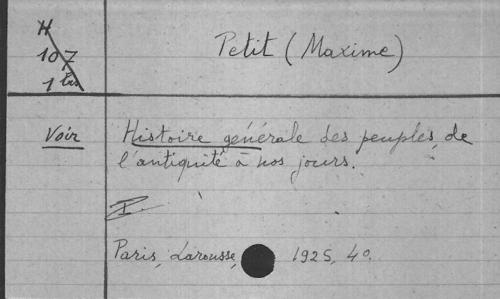 H
107
1 bis
Petit (Maxime)
Voir
Histoire générale des peuples de
l'antiquité à nos jours.
I
Paris, Larousse, 1925, 4o.